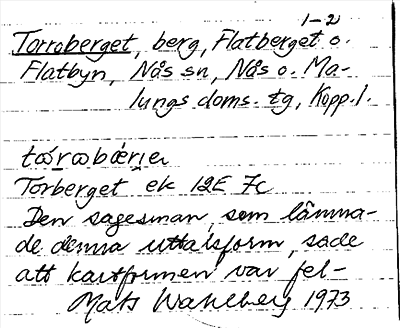 1-2
Torroberget, berg, Flatberget o.
Flatbyn, Nås sn, Nås o. Ma-
lungs doms. tg, Kopp. l.
tòrabæ̀rjer
Torberget ek 12E 7c
Den sagesman, som lämna-
de denna uttalsform, sade
att kartformen var fel-
Mats Wahlberg 1973